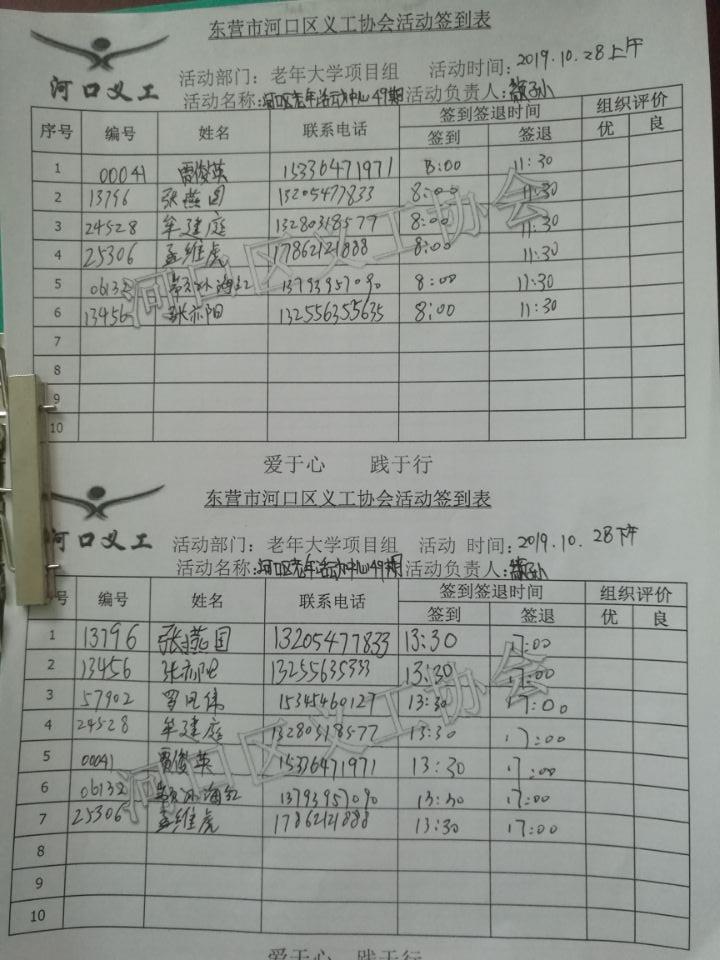 东营市河口区义工协会活动签到表
河口义工
活动部门：老年大学项目组 活动时间：2019.10.28上午
活动名称：河口区老年活动中心49期 活动负责人：
序号 编号 姓名 联系电话 签到签退时间 组织评价
签到 签退 优 良
1 00041 贾俊英 15376471971 8:00 11:30
2 13796 张燕国 13205477833 8:00 11:30
3 24528 牟建庭 13280318577 8:00 11:30
4 25306 孟维虎 17862121888 8:00 11:30
5 06132 海红 13793957090 8:00 11:30
6 13456 张亦阳 132556355635 8:00 11:30
7
8
9
10
河口区义工协会
爱于心 践于行
东营市河口区义工协会活动签到表
河口义工
活动部门：老年大学项目组 活动 时间：2019.10.28下午
活动名称：河口区老年活动中心49期 活动负责人：
号 编号 姓名 联系电话 签到签退时间 组织评价
签到 签退 优 良
1 13796 张燕国 13205477833 13:30 17:00
2 13456 张亦阳 13255635333 13:30 17:00
3 57902 罗凤伟 15345460127 13:30 17:00
4 24528 牟建庭 13280318577 13:30 17:00
5 00041 贾俊英 15376471971 13:30 17:00
6 06132 海红 13793957090 13:30 17:00
7 25306 孟维虎 17862121888 13:30 17:00
8
9
10
河口区义工协会
爱于心 践于行